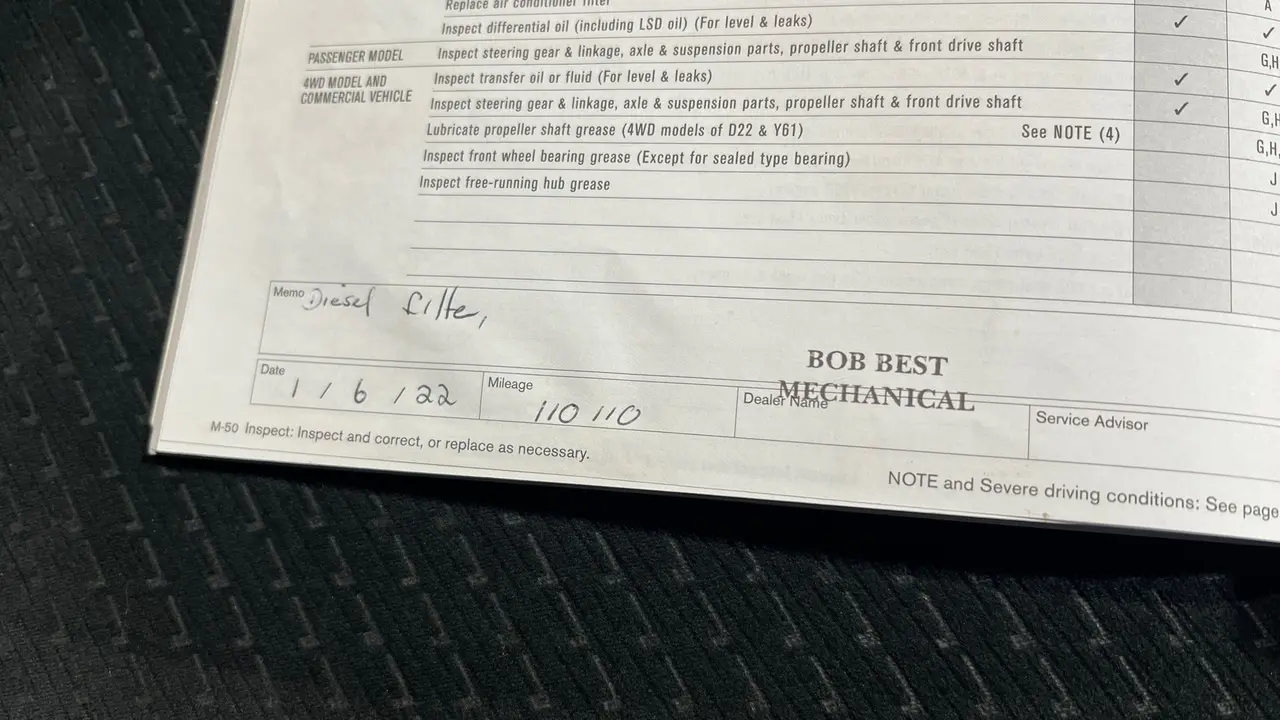 Replace air conditioner filter
A
Inspect differential oil (including LSD oil) (For level & leaks) ✓ ✓
PASSENGER MODEL Inspect steering gear & linkage, axle & suspension parts, propeller shaft & front drive shaft G,H
4WD MODEL AND COMMERCIAL VEHICLE
Inspect transfer oil or fluid (For level & leaks) ✓ ✓
Inspect steering gear & linkage, axle & suspension parts, propeller shaft & front drive shaft ✓ G,H
Lubricate propeller shaft grease (4WD models of D22 & Y61) See NOTE (4) G,H,
Inspect front wheel bearing grease (Except for sealed type bearing) J
Inspect free-running hub grease J
Memo Diesel filter,
BOB BEST
MECHANICAL
Date 1 / 6 / 22
Mileage 110 110
Dealer Name
Service Advisor
M-50 Inspect: Inspect and correct, or replace as necessary.
NOTE and Severe driving conditions: See page